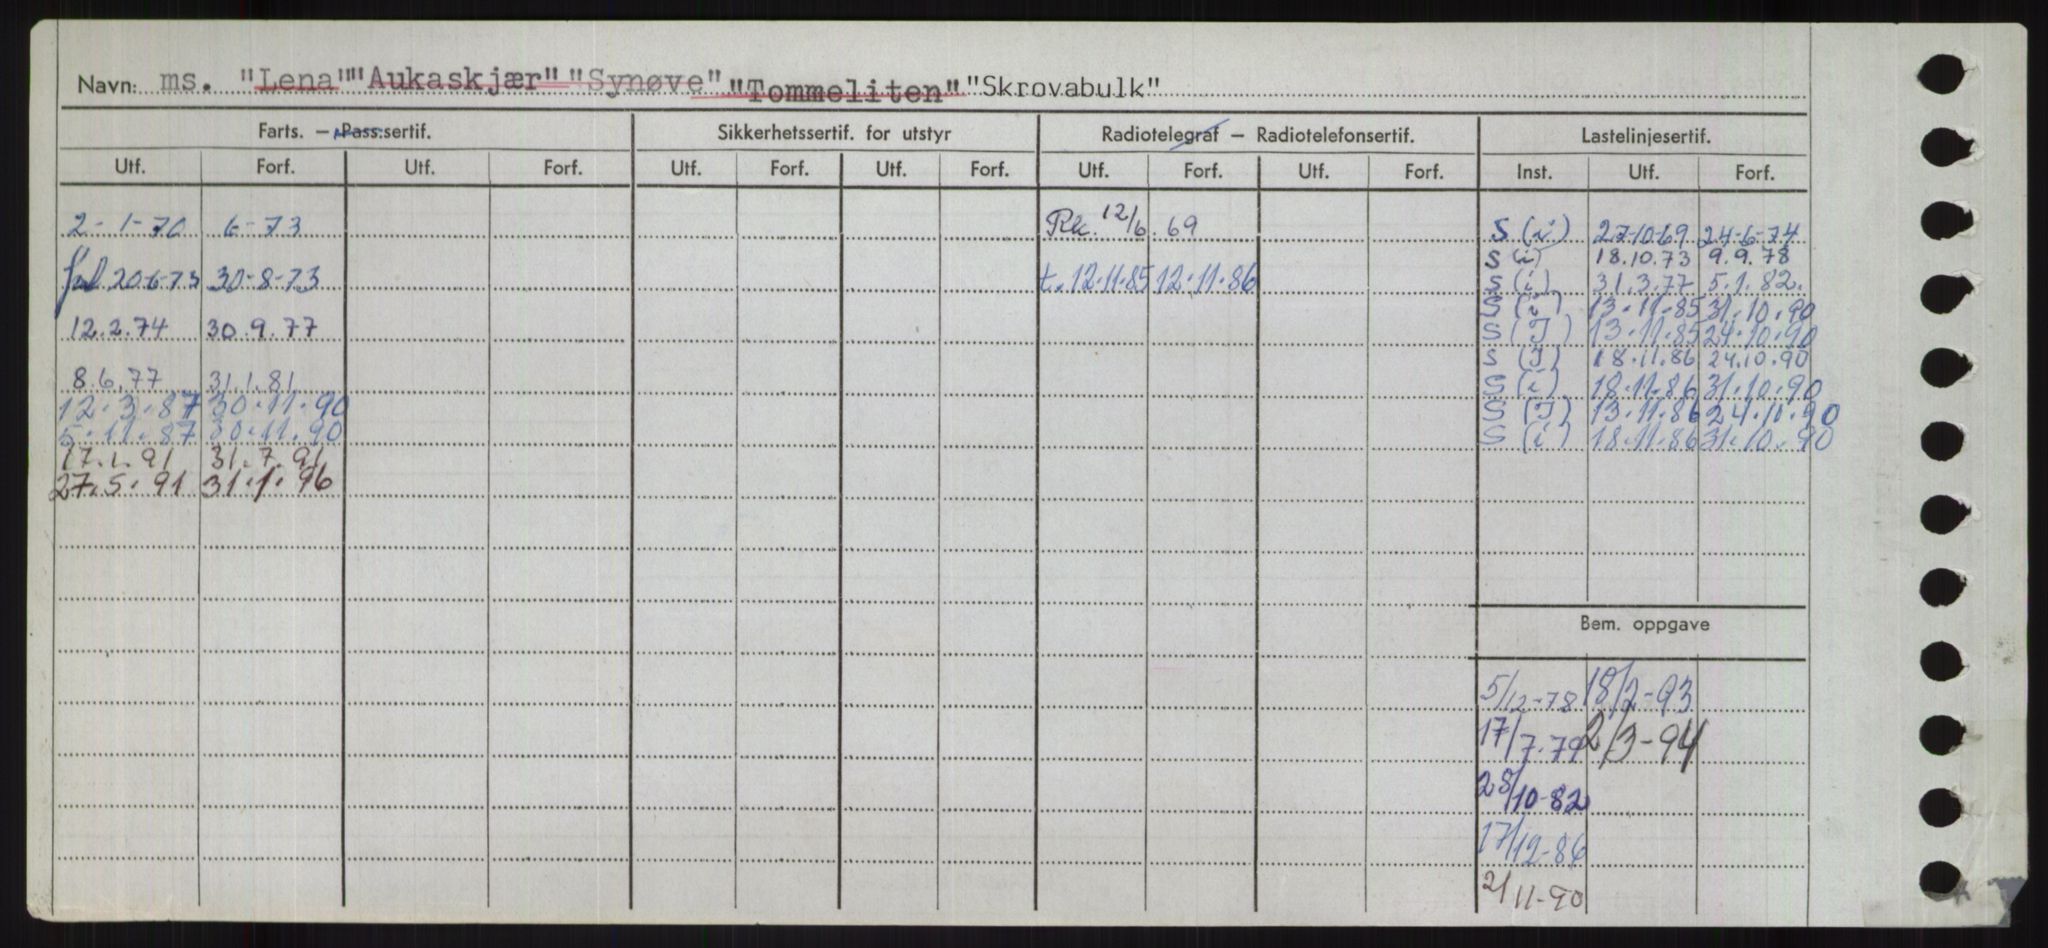 Navn: ms. "Lena" "Aukaskjær" "Synøve" "Tommeliten" "Skrovabulk"
Farts. – Pass.sertif. Sikkerhetssertif. for utstyr Radiotelegraf – Radiotelefonsertif. Lastelinjesertif.
Utf. Forf. Utf. Forf. Utf. Forf. Utf. Forf. Utf. Forf. Utf. Forf. Inst. Utf. Forf.
2-1-70 6-73 12/6.69 S (i) 27-10-69 24-6-74
S (i) 18.10.73 9.9.78
20-6-73 30-8-73 t. 12.11.85 12.11.86 S (i) 31.3.77 5.1.82.
S (i) 13.11.85 31.10.90
12.2.74 30.9.77 S (I) 13.11.85 24.10.90
S (I) 18.11.86 24.10.90
8.6.77 31.1.81 S (i) 18.11.86 31.10.90
12.3.87 30.11.90 S (I) 13.11.86 24.10.90
5.11.87 30.11.90 S (i) 18.11.86 31.10.90
17.1.91 31.7.91
27.5.91 31.1.96
Bem. oppgave
5/12-78 18/2-93
17/7-79 2/3-94
28/10-82
17/12-86
2/11-90